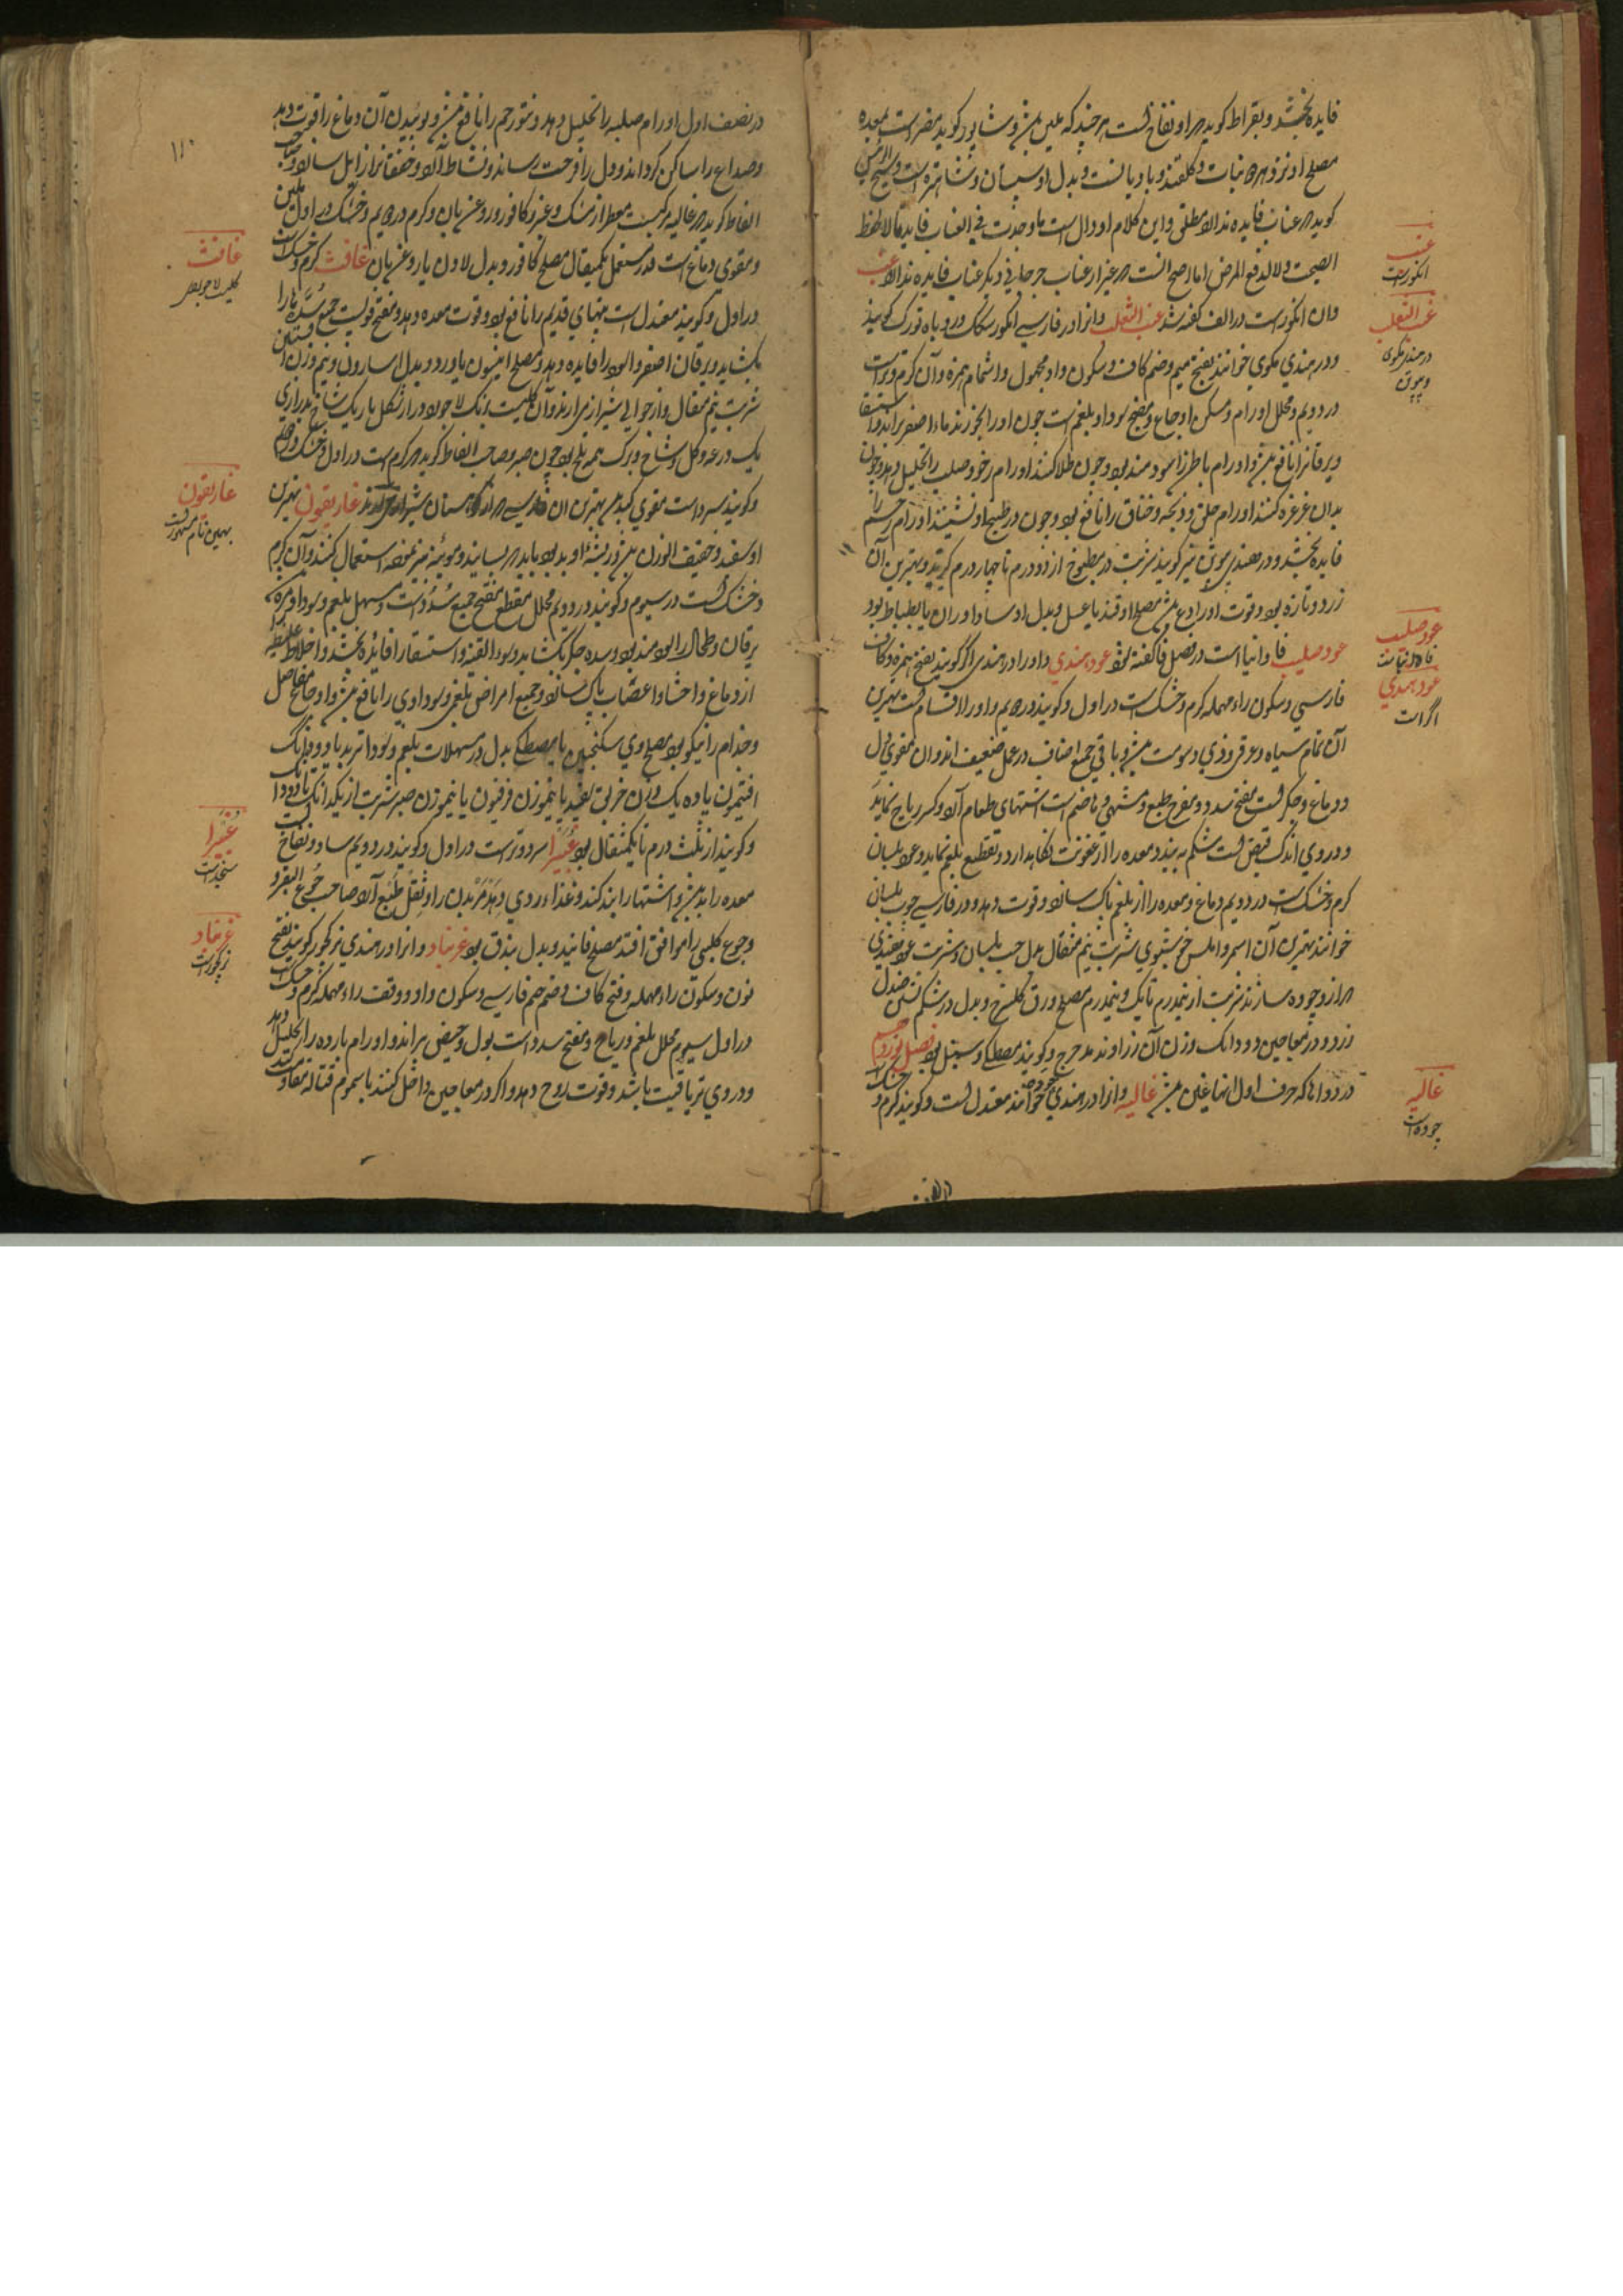 فایده بخشد و بقراط گوید که او نفاخ است هر چند که ملین بود و شاپور گوید مضر است بمعده
مصلح او نبات و گلقند و بادیانست و بدل او سپستان و شاهتره است و شیخ الرئیس
گوید که عناب فایده ندارد مطلق و این کلام او دال است ما وجدت فی العناب فایدة لا لحفظ
الصحت ولا لدفع المرض اما اصح آنست که غیر از عناب جرجانی دیگر عناب فایده ندارد عنب
و آن انگور است در الف گفته شد عنب الثعلب و آنرا در فارسی انگور سگک و روباه تورک گویند
و در هندی مکوی خوانند بفتح میم و ضم کاف و سکون واو مجهول و اشمام همزه و آن گرم و تر است
در دویم و محلل اورام و مسکن اوجاع و منضج سودا و بلغم است چون او را بخورند ماء اصفر براند و استسقا
و یرقانرا نافع بود و اورام باطن را سودمند بود و چون طلا کنند اورام رخو و صلب را تحلیل دهد و چون
بدان غرغره کنند اورام حلق و ذبحه و خناق را نافع بود و چون در طبیخ او نشینند اورام رحم را
فایده بخشد و در هندی پیوتن نیز گویند شربت در مطبوخ از دو درم تا چهار درم گیرند و بهترین آن
زرد و تازه بود و قوت او رادع بود مصلح او قند یا عسل و بدل او ساداوران یا بطباط بود
عود صلیب فاوانیا است در فصل فا گفته شود عود هندی و او را در هندی اگر گویند بفتح همزه و کاف
فارسی و سکون راء مهمله گرم و خشک است در اول و گویند در دویم و او را اقسام است بهترین
آن تمام سیاه و عرقی و ذی دسومت بود و باقی جمیع اصناف در عمل ضعیف اند و آن مقوی دل
و دماغ و جگر است مفتح سدد و مفرح طبع و مشهی و هاضم است اشتهای طعام آرد و کسر ریاح نماید
و در وی اندک قبض است شکم به بندد و معده را از عفونت نگاهدارد و تقطیع بلغم نماید و عود بلسان
گرم و خشک است در دویم دماغ و معده را از بلغم پاک سازد و قوت دهد و در فارسی چوب بلسان
خوانند بهترین آن اسمر و املس خوشبوی شربت نیم مثقال بدل حب بلسان و شربت عود هندی
که از وجوده سازند شربت از نیمدرم تا یک و نیمدرم مصلح ورق گلسرخ و بدل در شکم بستن صندل
زرد و در معاجین دو دانک وزن آن زراوند مدحرج و گویند مصطکی و سنبل بود فصل نوزدهم
در دواها که حرف اول آنها غین بود غالیه و آنرا در هندی خوانند معتدل است و گویند گرم و خشک
عنب
انگور است
عنب الثعلب
در هندی مکوی
و پیوتن
عود صلیب
فاوانیا است
عود هندی
اگر است
غالیه
چوده است
در نصف اول اورام صلبه را تحلیل دهد و متورحم را نافع بود و بوئیدن آن دماغ را قوت دهد
و صداع را ساکن گرداند و دل را فرحت رساند و نشاط آرد و خفقانرا زایل سازد و صاحب
الفاظ گوید که غالیه مرکبیست معطر از مشک و عنبر و کافور و روغن بان و گرم در دویم و خشک در اول ملین
و مقوی دماغ است قدر مستعمل یکمثقال مصلح کافور و بدل لادن یا روغن بان غافث گرم و خشک است
در اول و گویند معتدل است تبهای قدیم را نافع بود و قوت معده دهد و مفتح قویست جمیع سده ها را
بکشاید و یرقان اصفر و اسود را فایده دهد و مصلح انیسون یا ورد و بدل اسارون و نیم وزن افسنتین
شربت نیم مثقال و از حوالی شیراز می آرند و آن گلیست برنگ لاجورد دراز شکل باریک شاخ بدرازی
یک درعه و گل و شاخ و برگ همه تلخ بود چون صبر و صاحب الفاظ گوید که گرم است در اول و خشک در دویم
و گویند سرد است مقوی کبد بود بهترین آن فارسی که از کوهستان شیراز آرند غاریقون بهترین
او سفید و خفیف الوزن بود و ریشهٔ او بد بود باید که بسایند و موئینه بیز نموده استعمال کنند و آن گرم
و خشک است در سیوم و گویند در دویم محلل مقطع مفتح جمیع سدد است و مسهل بلغم و سودا و مره
یرقان و طحال را سودمند بود و سده جگر بکشاید و سوء القنیه و استسقا را فائده بخشد و اخلاط غلیظه
از دماغ و احشا و اعصاب پاک سازد و جمیع امراض بلغمی و سوداوی را نافع بود و اوجاع مفاصل
و جذام را نیکو بود مصلح وی سکنجبین یا مصطکی بدل در مسهلات بلغم و سودا تربد با دو دانک
افتیمون یا ده یک وزن خربق سفید یا نیموزن فرفیون یا نیموزن صبر شربت از یکدانک تا دو دانک
و گویند از ثلث درم تا یکمثقال بود غبیرا سرد و تر است در اول و گویند در دویم ساده و نفاخ است
معده را بد بود و اشتها را بند کند و غذاء ردی دهد مر بدن را و ثقل طبع آرد صاحب جوع البقر
و جوع کلبی را موافق افتد مصلح فانید و بدل بندق بود غرمناد و آنرا در هندی نرکچور گویند بفتح
نون و سکون راء مهمله و فتح کاف و ضم جیم فارسی و سکون واو و وقف راء مهمله گرم و خشک است
در اول سیوم محلل بلغم و ریاح و مفتح سدد است بول و حیض براند و اورام بارده را تحلیل دهد
و در وی تریاقیت باشد و قوت روح دهد و اگر در معاجین داخل کنند با سموم قتاله مقاومت کند
۱۱۰
غافث
گلیست لاجوردی
غاریقون
بهمین نام مشهور است
غبیرا
سنجد است
غرمناد
نرکچور است